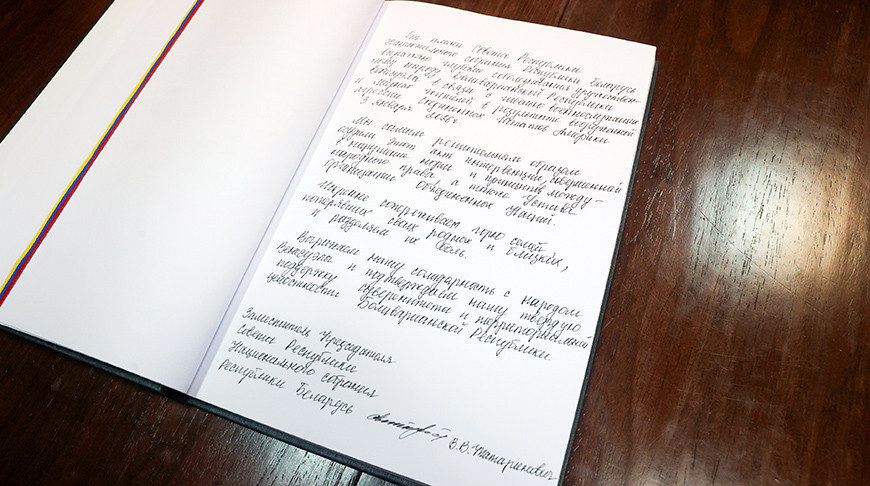 От имени Совета Республики
Национального собрания Республики Беларусь
выражаю глубокие соболезнования дружествен-
ному народу Боливарианской Республики
Венесуэла в связи с гибелью военнослужащих
и мирных жителей в результате вооруженной
агрессии Соединенных Штатов Америки
3 января 2026г.
Мы самым решительным образом
осудили этот акт интервенции, совершенной
в нарушение норм и принципов между-
народного права, а также Устава
Организации Объединенных Наций.
Искренне сопереживаем горю семей,
потерявших своих родных и близких,
и разделяем их боль.
Выражаем нашу солидарность с народом
Венесуэлы и подтверждаем нашу твёрдую
поддержку суверенитета и территориальной
целостности Боливарианской Республики.
Заместитель Председателя
Совета Республики
Национального собрания
Республики Беларусь
В.В. Татаринович